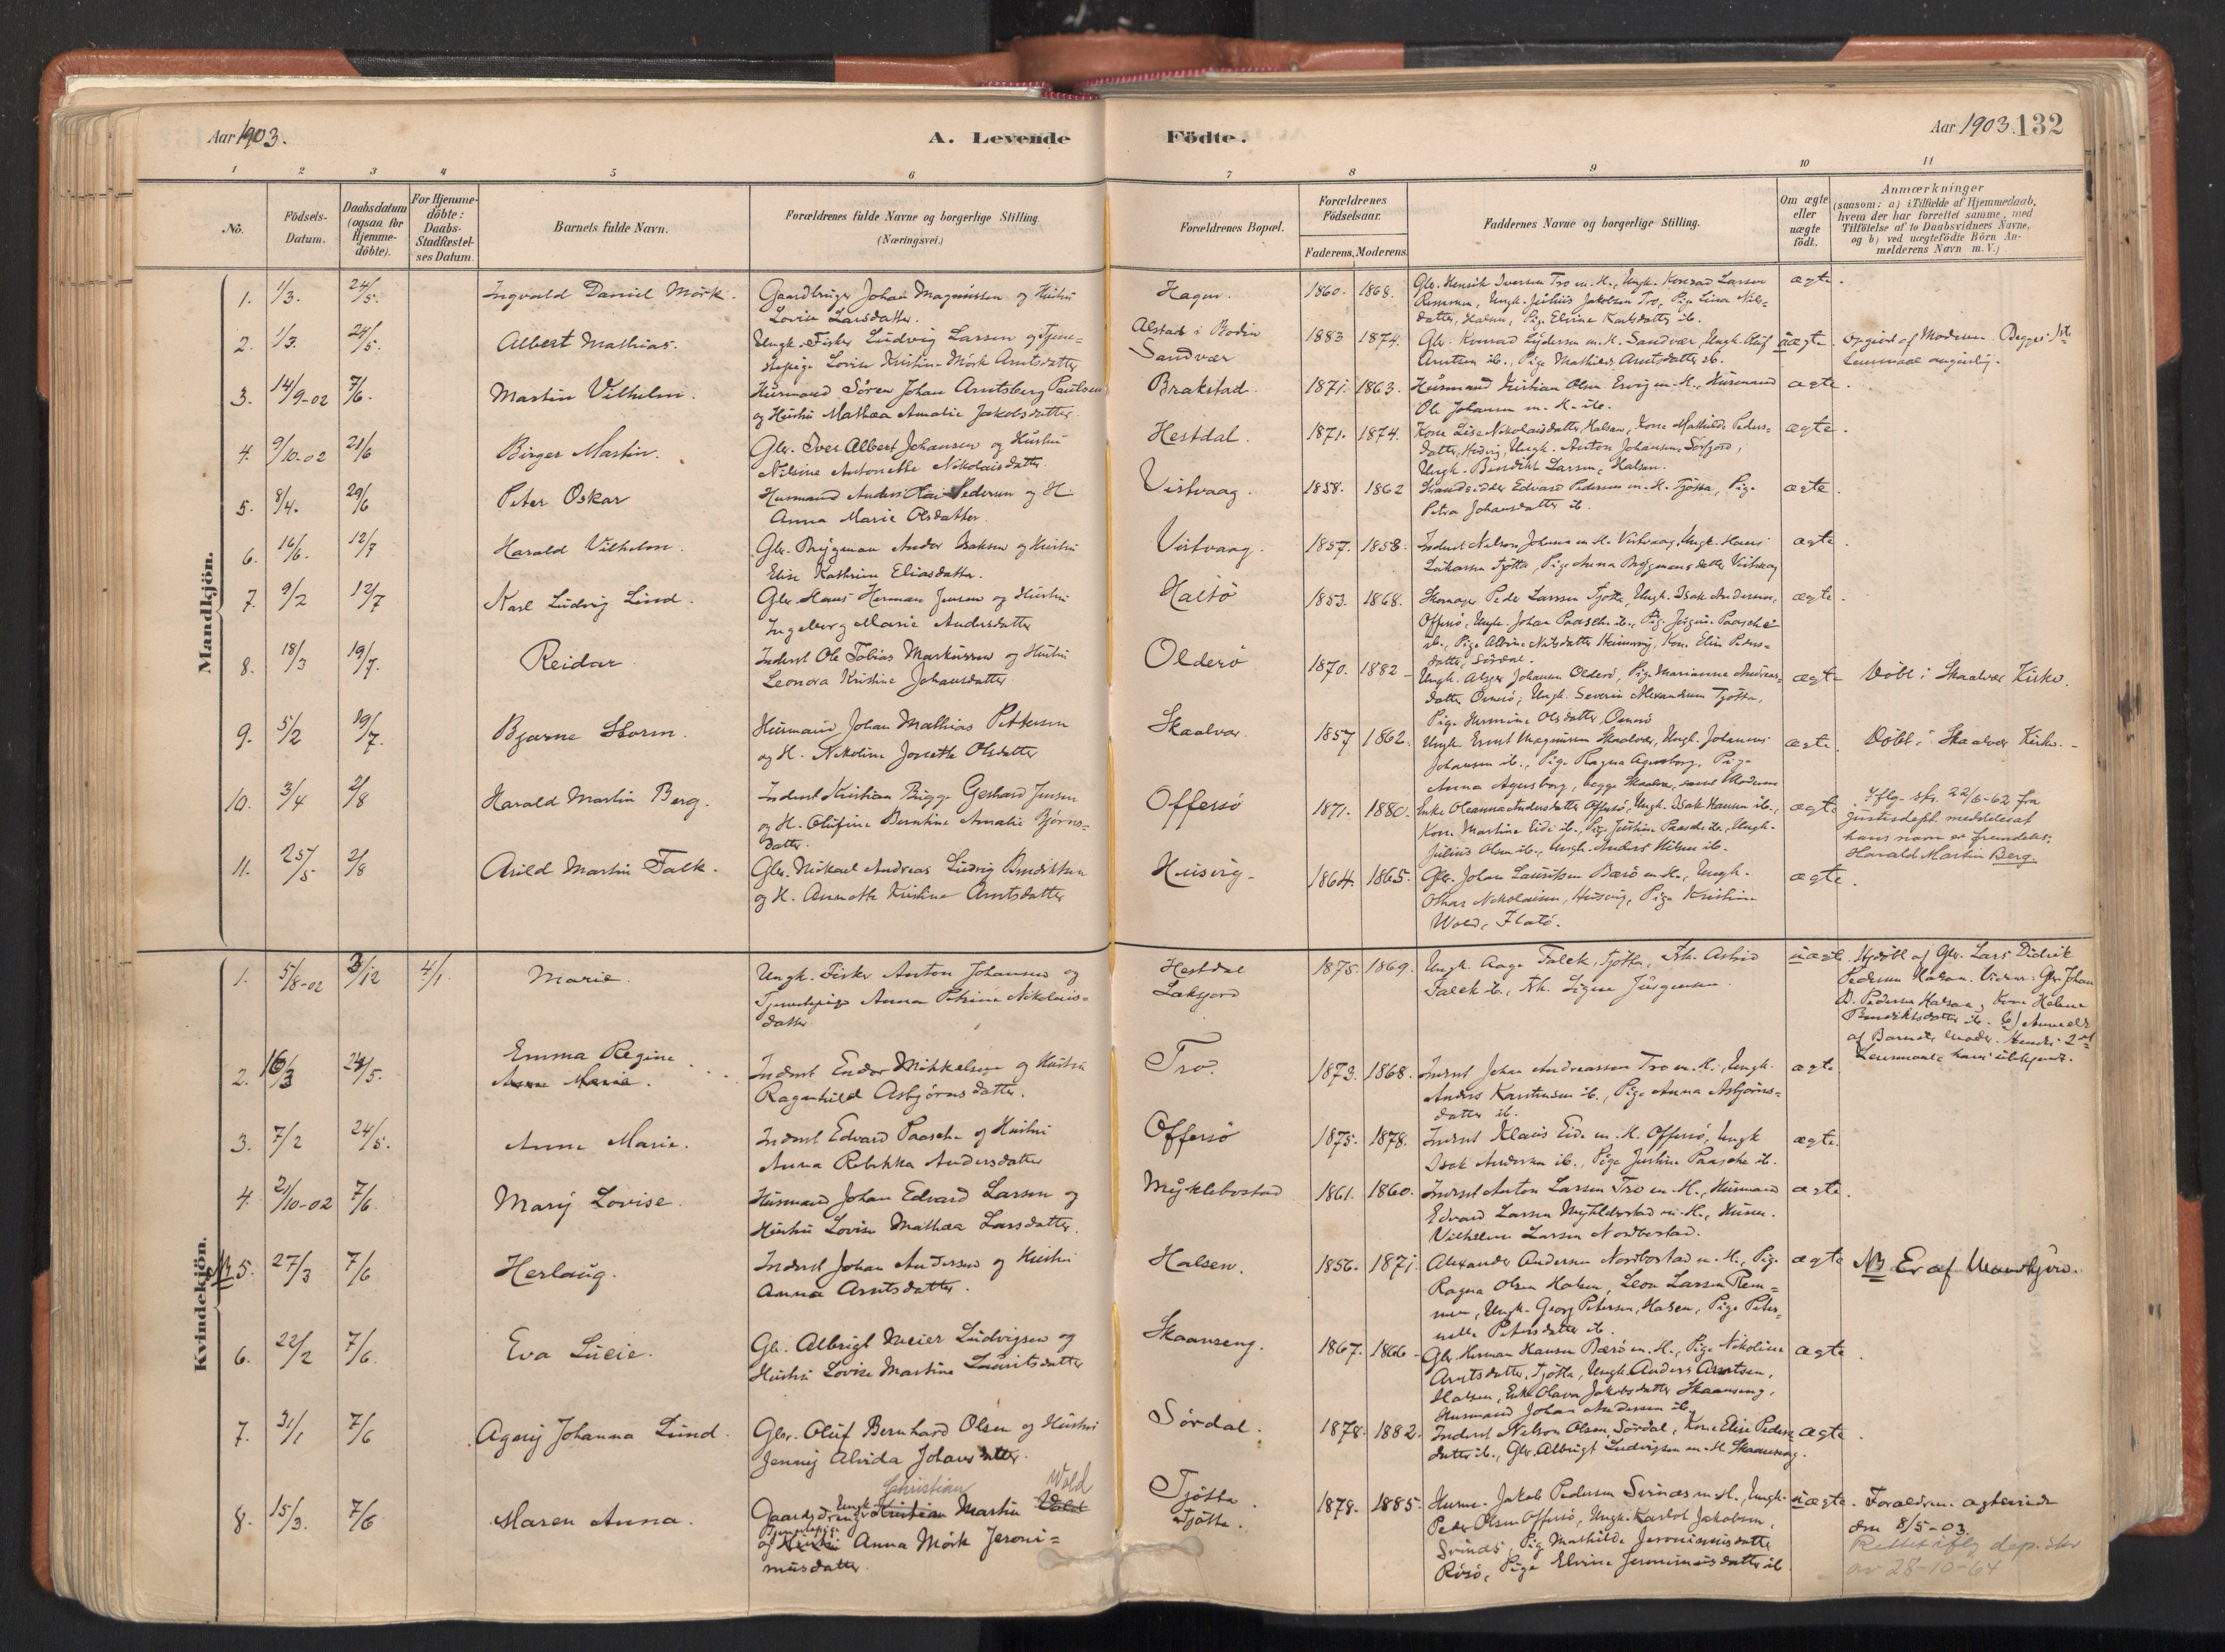 Aar 1903.
A. Levende
Födte.
Aar 1903. 132
1 2 3 4 5 6 7 8 9 10 11
No.
Födsels-
Datum.
Daabsdatum
(ogsaa for
Hjemme-
döbte).
For Hjemme-
döbte:
Daabs-
Stadfæstel-
ses Datum.
Barnets fulde Navn.
Forældrenes fulde Navne og borgerlige Stilling.
(Næringsvei.)
Forældrenes Bopæl.
Forældrenes
Födselsaar.
Faderens. Moderens.
Faddernes Navne og borgerlige Stilling.
Om ægte
eller
uægte
födt.
Anmærkninger
(saasom: a) i Tilfælde af Hjemmedaab,
hvem der har forrettet samme, med
Tilföielse af to Daabsvidners Navne.
og b) ved uægtefödte Börn An-
melderens Navn m. V.)
Mandkjön.
1. 1/3. 24/5. Ingvald Daniel Mörk.
Gaardbruger Johan Magnussen og Hustru
Lovise Larsdatter.
Hagen. 1860. 1868.
Gbr. Henrik Iversen Tro m. H., Ungk. Konrad Larsen
Remmen, Ungk. Julius Jakobsen Tro, Pige Lina Nils-
datter, Halsen, Pige Elvine Karlsdatter ib.
ægte.
2. 1/3. 24/5. Albert Mathias.
Ungk. Fisker Ludvig Larsen og Tjene-
stepige Lovise Kristine Mörk Arntsdatter
Alstad i Bodin
Sandvær
1883 1874.
Gbr. Konrad Lydersen m. H. Sandvær, Ungk. Oluf
Arntsen ib., Pige Mathilde Arntsdatter ib.
uægte. Opgivet af Moderen. Begges 1ste
Leiermaal angivelig.
3. 14/9-02 7/6. Martin Vilhelm.
Husmand Sören Johan Arntsberg Paulsen
og Hustru Mathea Amalie Jakobsdatter.
Brakstad. 1871. 1863.
Husmand Kristian Olsen Ervig m. H., Husmand
Ole Johansen m. H. ib.
ægte.
4. 9/10-02 21/6 Birger Martin.
Gbr. Iver Albert Johansen og Hustru
Nilsine Antonette Nikolaisdatter
Hestdal. 1871. 1874.
Kone Lise Nikolaisdatter, Halsen, Kone Mathilde Peders-
datter, Husvig, Ungk. Anton Johansen, Sörfjord,
Ungk. Bendikt Larsen, Halsen.
ægte.
5. 8/4. 29/6 Peter Oskar
Husmand Anders Kai Pedersen og H
Anna Marie Olsdatter.
Vistvaag. 1858. 1862
Strandsidder Edvard Pedersen m. H. Tjötta, Pige
Petra Johansdatter ib.
ægte.
6. 16/6. 12/7 Harald Vilhelm.
Gbr. Brygman Andor Isaksen og Hustru
Elise Kathrine Eliasdatter.
Vistvaag. 1857. 1858.
Inderst Nelson Johnsen m. H. Vistvaag, Ungk. Hans
Zakarsen Tjötta, Pige Anna Brygmansdatter Vistvaag
ægte.
7. 9/2 12/7 Karl Ludvig Lind.
Gbr. Hans Herman Jensen og Hustru
Ingeborg Marie Andersdatter
Haltö 1853. 1868.
Skomager Peder Larssen Tjötta, Ungk. Isak Andersen,
Offersö, Ungk. Johan Paasche ib., Pige Jörgine Paasche
ib., Pige Albine Nilsdatter Heimvig, Kone Elise Peders-
datter, Sördal.
ægte.
8. 18/3 19/7. Reidar
Inderst Ole Tobias Markussen og Hustru
Leonora Kristine Johansdatter.
Olderö 1870. 1882
Ungk. Alsger Johansen Olderö, Pige Marianne Andreas-
datter Örnesö, Ungk. Severin Alexandersen Tjötta,
Pige Hermine Olsdatter, Örnesö
ægte Döbt i Skaalvær Kirke.
9. 5/2 19/7. Bjarne Storm.
Husmand Johan Mathias Pettersen
og H. Nikoline Jonette Olsdatter
Skaalvær. 1857 1862.
Ungk. Ernst Magnussen Skaalvær, Ungk. Johannes
Johansen ib., Pige Ragna Agersborg, Pige
Anna Agersborg, begge Skaalvær, samt Moderen
ægte. Döbt i Skaalvær Kirke.
10. 3/4 2/8 Harald Martin Berg.
Inderst Kristian Brigge Gerhard Jensen
og H. Olufine Berntine Amalie Björns-
datter.
Offersö 1871. 1880.
Enke Oleanna Andersdatter Offersö, Ungk. Isak Hansen ib.,
Kone Martine Eide ib., Pige Justine Paasche ib., Ungk.
Julius Olsen ib., Ungk. Anders Nilsen ib.
ægte. Iflg. skr. 22/6-62 fra
justisdept. meddeles at
hans navn er fremdeles:
Harald Martin Berg.
11. 25/5 2/8 Arild Martin Falk.
Gbr. Mikael Andreas Ludvig Bendiktsen
og H. Annette Kristine Arntsdatter
Husvig. 1864. 1865.
Gbr. Johan Lauritsen Barö m. H., Ungk.
Othar Nikolaisen, Husvig, Pige Kristine
Wold, Flatö.
ægte.
Kvindekjön.
1. 5/8-02 3/12 4/1. Marie.
Ungk. Fisker Anton Johansen og
Tjenestepige Anna Petrine Nikolais-
datter
Hestdal
Laksfjord
1875. 1869.
Ungk. Aage Falck, Tjötta, Frk. Astrid
Falck ib., Frk. Signe Jürgensen.
uægte. Hjdöbt af Gbr. Lars Didrik
Pedersen Halsen. Vidner: Gbr. Johan
B. Pedersen Halsen, Kone Helene
Bendiktsdatter ib. b) Anmeldt
af Barnets Moder. Hendes 2det
Leiermaal, hans ubekjendt.
2. 16/3 24/5. Emma Regine
Anne Marie.
Inderst Endor Mikkelsen og Hustru
Ragnhild Asbjörnsdatter.
Tro. 1873. 1868.
Inderst Johan Andreassen Tro m. H., Ungk.
Anders Karstensen ib., Pige Anna Asbjörns-
datter ib.
ægte
3. 7/2 24/5. Anne Marie.
Inderst Edvard Paasche og Hustru
Anna Rebekka Andersdatter
Offersö 1875. 1878.
Inderst Klaus Eide m. H. Offersö, Ungk
Isak Andersen ib., Pige Justine Paasche ib.
ægte.
4. 2/10-02 7/6. Marÿ Lovise.
Husmand Johan Edvard Larsen og
Hustru Lovise Mathea Larsdatter.
Myklebostad 1861. 1860.
Inderst Anton Larsen Tro m. H., Husmand
Edvard Larsen Myklebostad m. H., Husm.
Vilhelm Larsen Nordbostad.
ægte.
NB 5. 27/3 7/6 Herlaug.
Inderst Johan Andersen og Hustru
Anna Arntsdatter.
Halsen. 1856. 1871.
Alexander Andersen Nordbostad m. H., Pige
Ragna Olsen Halsen, Leon Larsen Rem-
men, Ungk. Georg Petersen, Halsen, Pige Peter-
nelle Petersdatter ib.
ægte NB Er af Mandkjön.
6. 22/2 7/6. Eva Lucie.
Gbr. Albrigt Meier Ludvigsen og
Hustru Lovise Martine Lauritsdatter
Skaanseng. 1867. 1866
Gbr. Herman Hansen Barö m. H., Pige Nikoline
Arntsdatter, Tjötta, Ungk. Anders Arntsen,
Halsen, Enke Olava Jakobsdatter Skaanseng,
Husmand Johan Andersen ib.
ægte.
7. 31/1 7/6 Agevj Johanna Lund.
Gbr. Oluf Bernhard Olsen og Hustru
Jenny Alvida Johansdatter.
Sördal. 1878. 1882.
Inderst Nelson Olsen, Sördal, Kone Elise Peders-
datter ib., Gbr. Albrigt Ludvigsen m. H. Skaanseng.
ægte.
8. 15/3. 7/6 Maren Anna.
Christian Wold
Gaardsdreng Ungk. Kristian Martin Wold
Tjenestepige
og Hustru Anna Mörk Jeroni-
musdatter.
Tjötta.
Tjötta.
1878. 1885.
Husm. Jakob Pedersen Svinæs m. H., Ungk.
Peder Olsen Offersö, Ungk. Karlot Jakobsen,
Svinæs, Pige Mathilde Jeronimusdatter
Rösö, Pige Elvine Jeronimusdatter ib
uægte. Forældrene ægteviede
den 8/5-03.
Rettet iflg. dep. skr
av 28-10-64